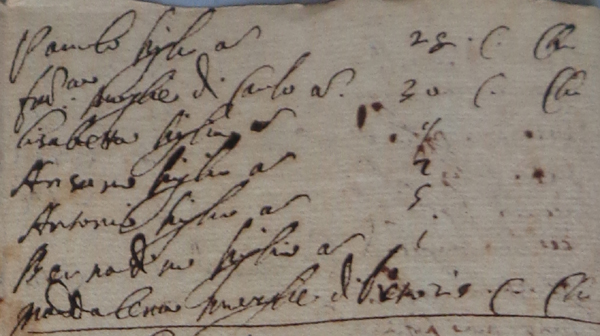 Paulo figlio a. 28. C. Ch.
fran.ca moglie di Carlo a. 30 C. Ch.
lisabetta figlia a.
Ansano figlio a.
Antonio figlio a. 5
Bernardino figlio a.
Maddalena moglie di C. Ch.